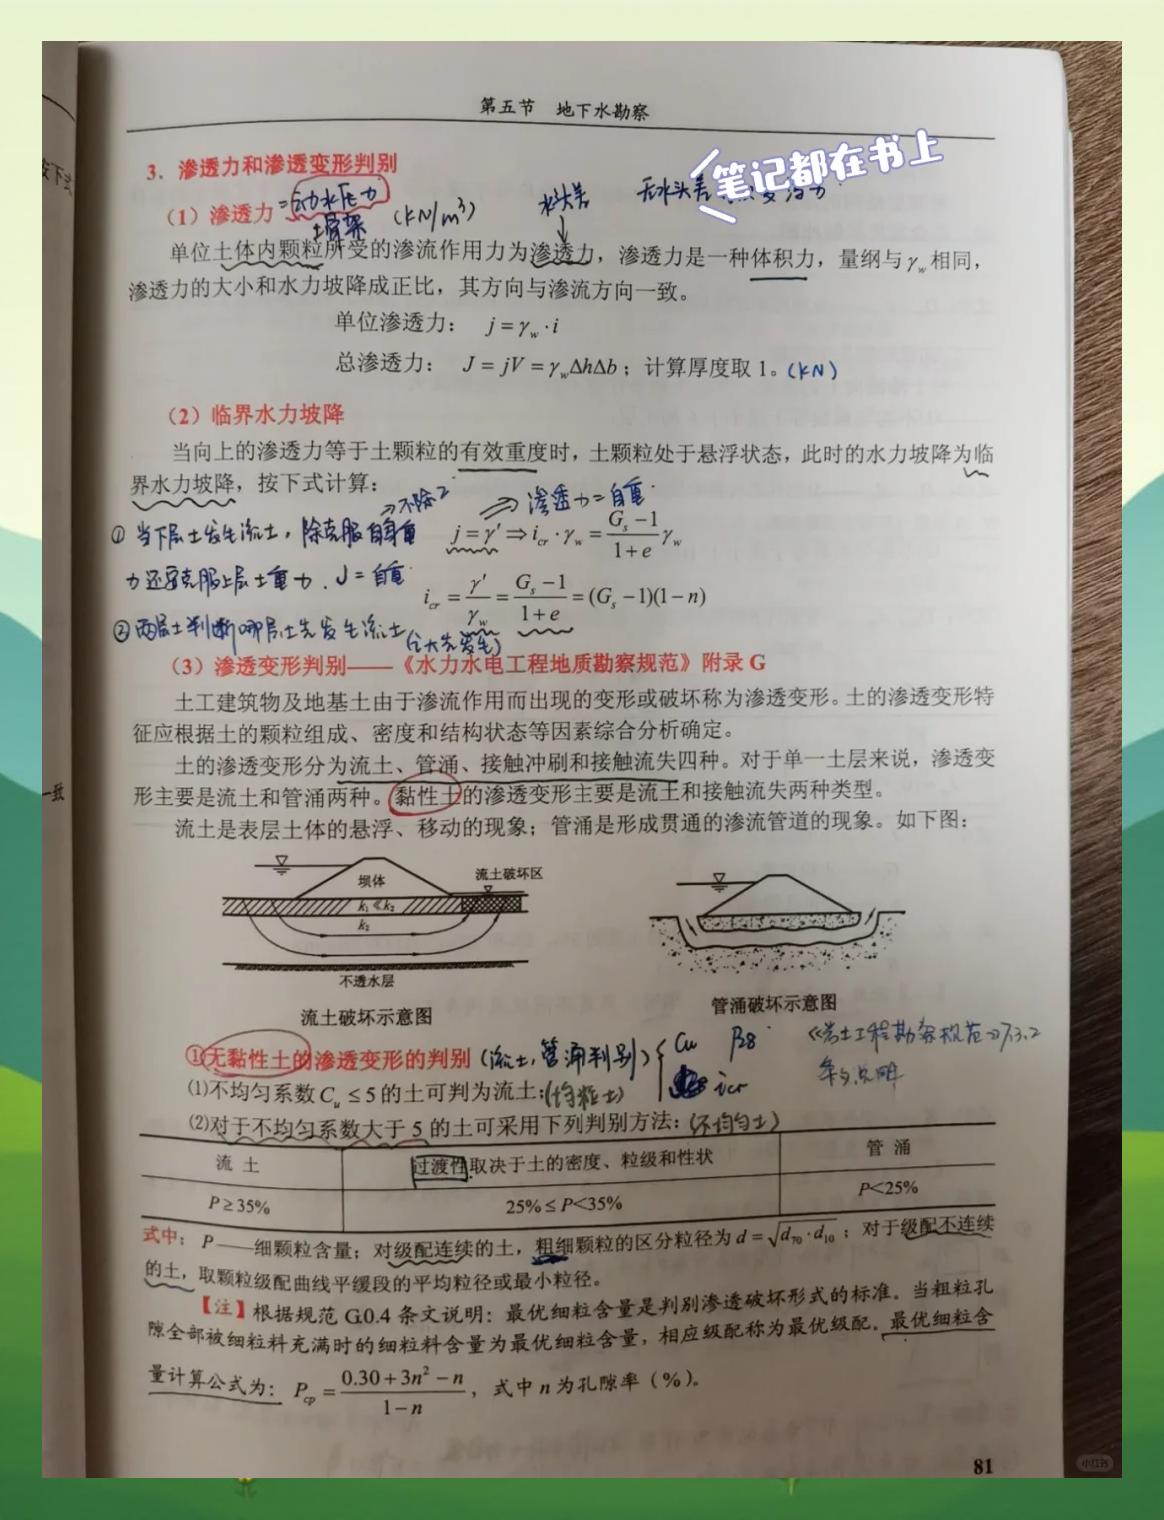 第五节 地下水勘察
笔记都在书上
3. 渗透力和渗透变形判别
(1) 渗透力 =动水压力 (kN/m³) 水头差 无水头差
土骨架
单位土体内颗粒所受的渗流作用力为渗透力，渗透力是一种体积力，量纲与γw相同，
渗透力的大小和水力坡降成正比，其方向与渗流方向一致。
单位渗透力： j=γw·i
总渗透力： J=jV=γwΔhΔb；计算厚度取 1。(kN)
(2) 临界水力坡降
当向上的渗透力等于土颗粒的有效重度时，土颗粒处于悬浮状态，此时的水力坡降为临
界水力坡降，按下式计算：
→不除2 ⇒ 渗透力=自重
① 当下层土发生流土，除克服自身重
j=γ'⇒icr·γw=(Gs-1)/(1+e)γw
力还要克服上层土重力．J=自重
icr=γ'/γw=(Gs-1)/(1+e)=(Gs-1)(1-n)
②两层土判断哪层土先发生流土
(3) 渗透变形判别——《水力水电工程地质勘察规范》附录 G
土工建筑物及地基土由于渗流作用而出现的变形或破坏称为渗透变形。土的渗透变形特
征应根据土的颗粒组成、密度和结构状态等因素综合分析确定。
土的渗透变形分为流土、管涌、接触冲刷和接触流失四种。对于单一土层来说，渗透变
形主要是流土和管涌两种。黏性土的渗透变形主要是流土和接触流失两种类型。
流土是表层土体的悬浮、移动的现象；管涌是形成贯通的渗流管道的现象。如下图：
坝体 流土破坏区
k1≪k2
k2
不透水层
流土破坏示意图 管涌破坏示意图
①无黏性土的渗透变形的判别 (流土,管涌判别) Cu P28 《岩土工程勘察规范》7.3.2
icr 条文说明
⑴不均匀系数 Cu≤5 的土可判为流土：(均粒土)
⑵对于不均匀系数大于 5 的土可采用下列判别方法：(不均匀土)
流 土 过渡性取决于土的密度、粒级和性状 管 涌
P≥35% 25%≤P<35% P<25%
式中：P——细颗粒含量；对级配连续的土，粗细颗粒的区分粒径为 d=√(d70·d10)；对于级配不连续
的土，取颗粒级配曲线平缓段的平均粒径或最小粒径。
【注】根据规范 G.0.4 条文说明：最优细粒含量是判别渗透破坏形式的标准。当粗粒孔
隙全部被细粒料充满时的细粒料含量为最优细粒含量，相应级配称为最优级配。最优细粒含
量计算公式为：Pcp=(0.30+3n²-n)/(1-n)，式中 n 为孔隙率（%）。
81
按下式
一致
小红书